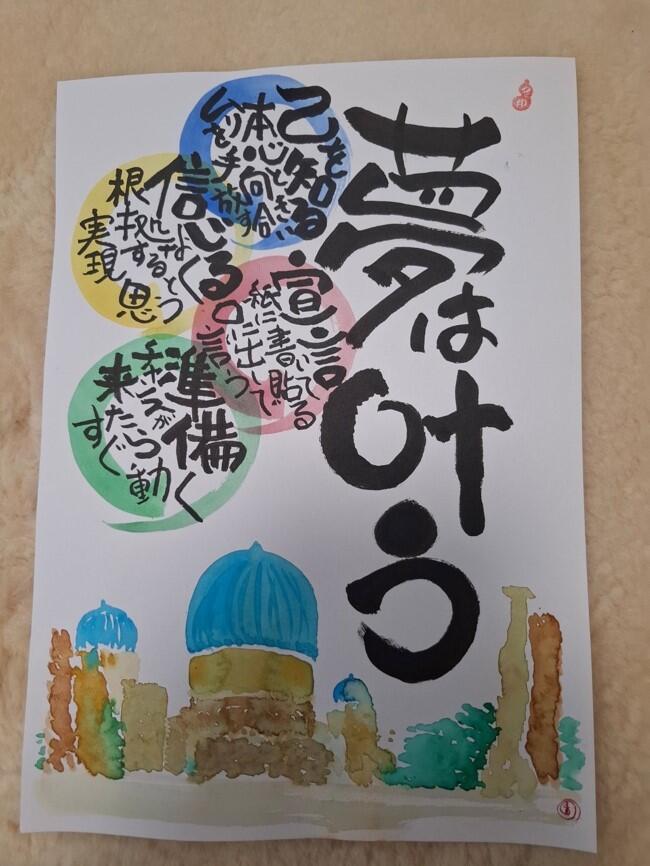 夢は叶う
己を知る
本心と向き合い
ムリを手放す
宣言
紙に書いて貼る
口に出して言う
信じる
根拠
実現
思
準備
チャンスが
来たら
すぐ
動く